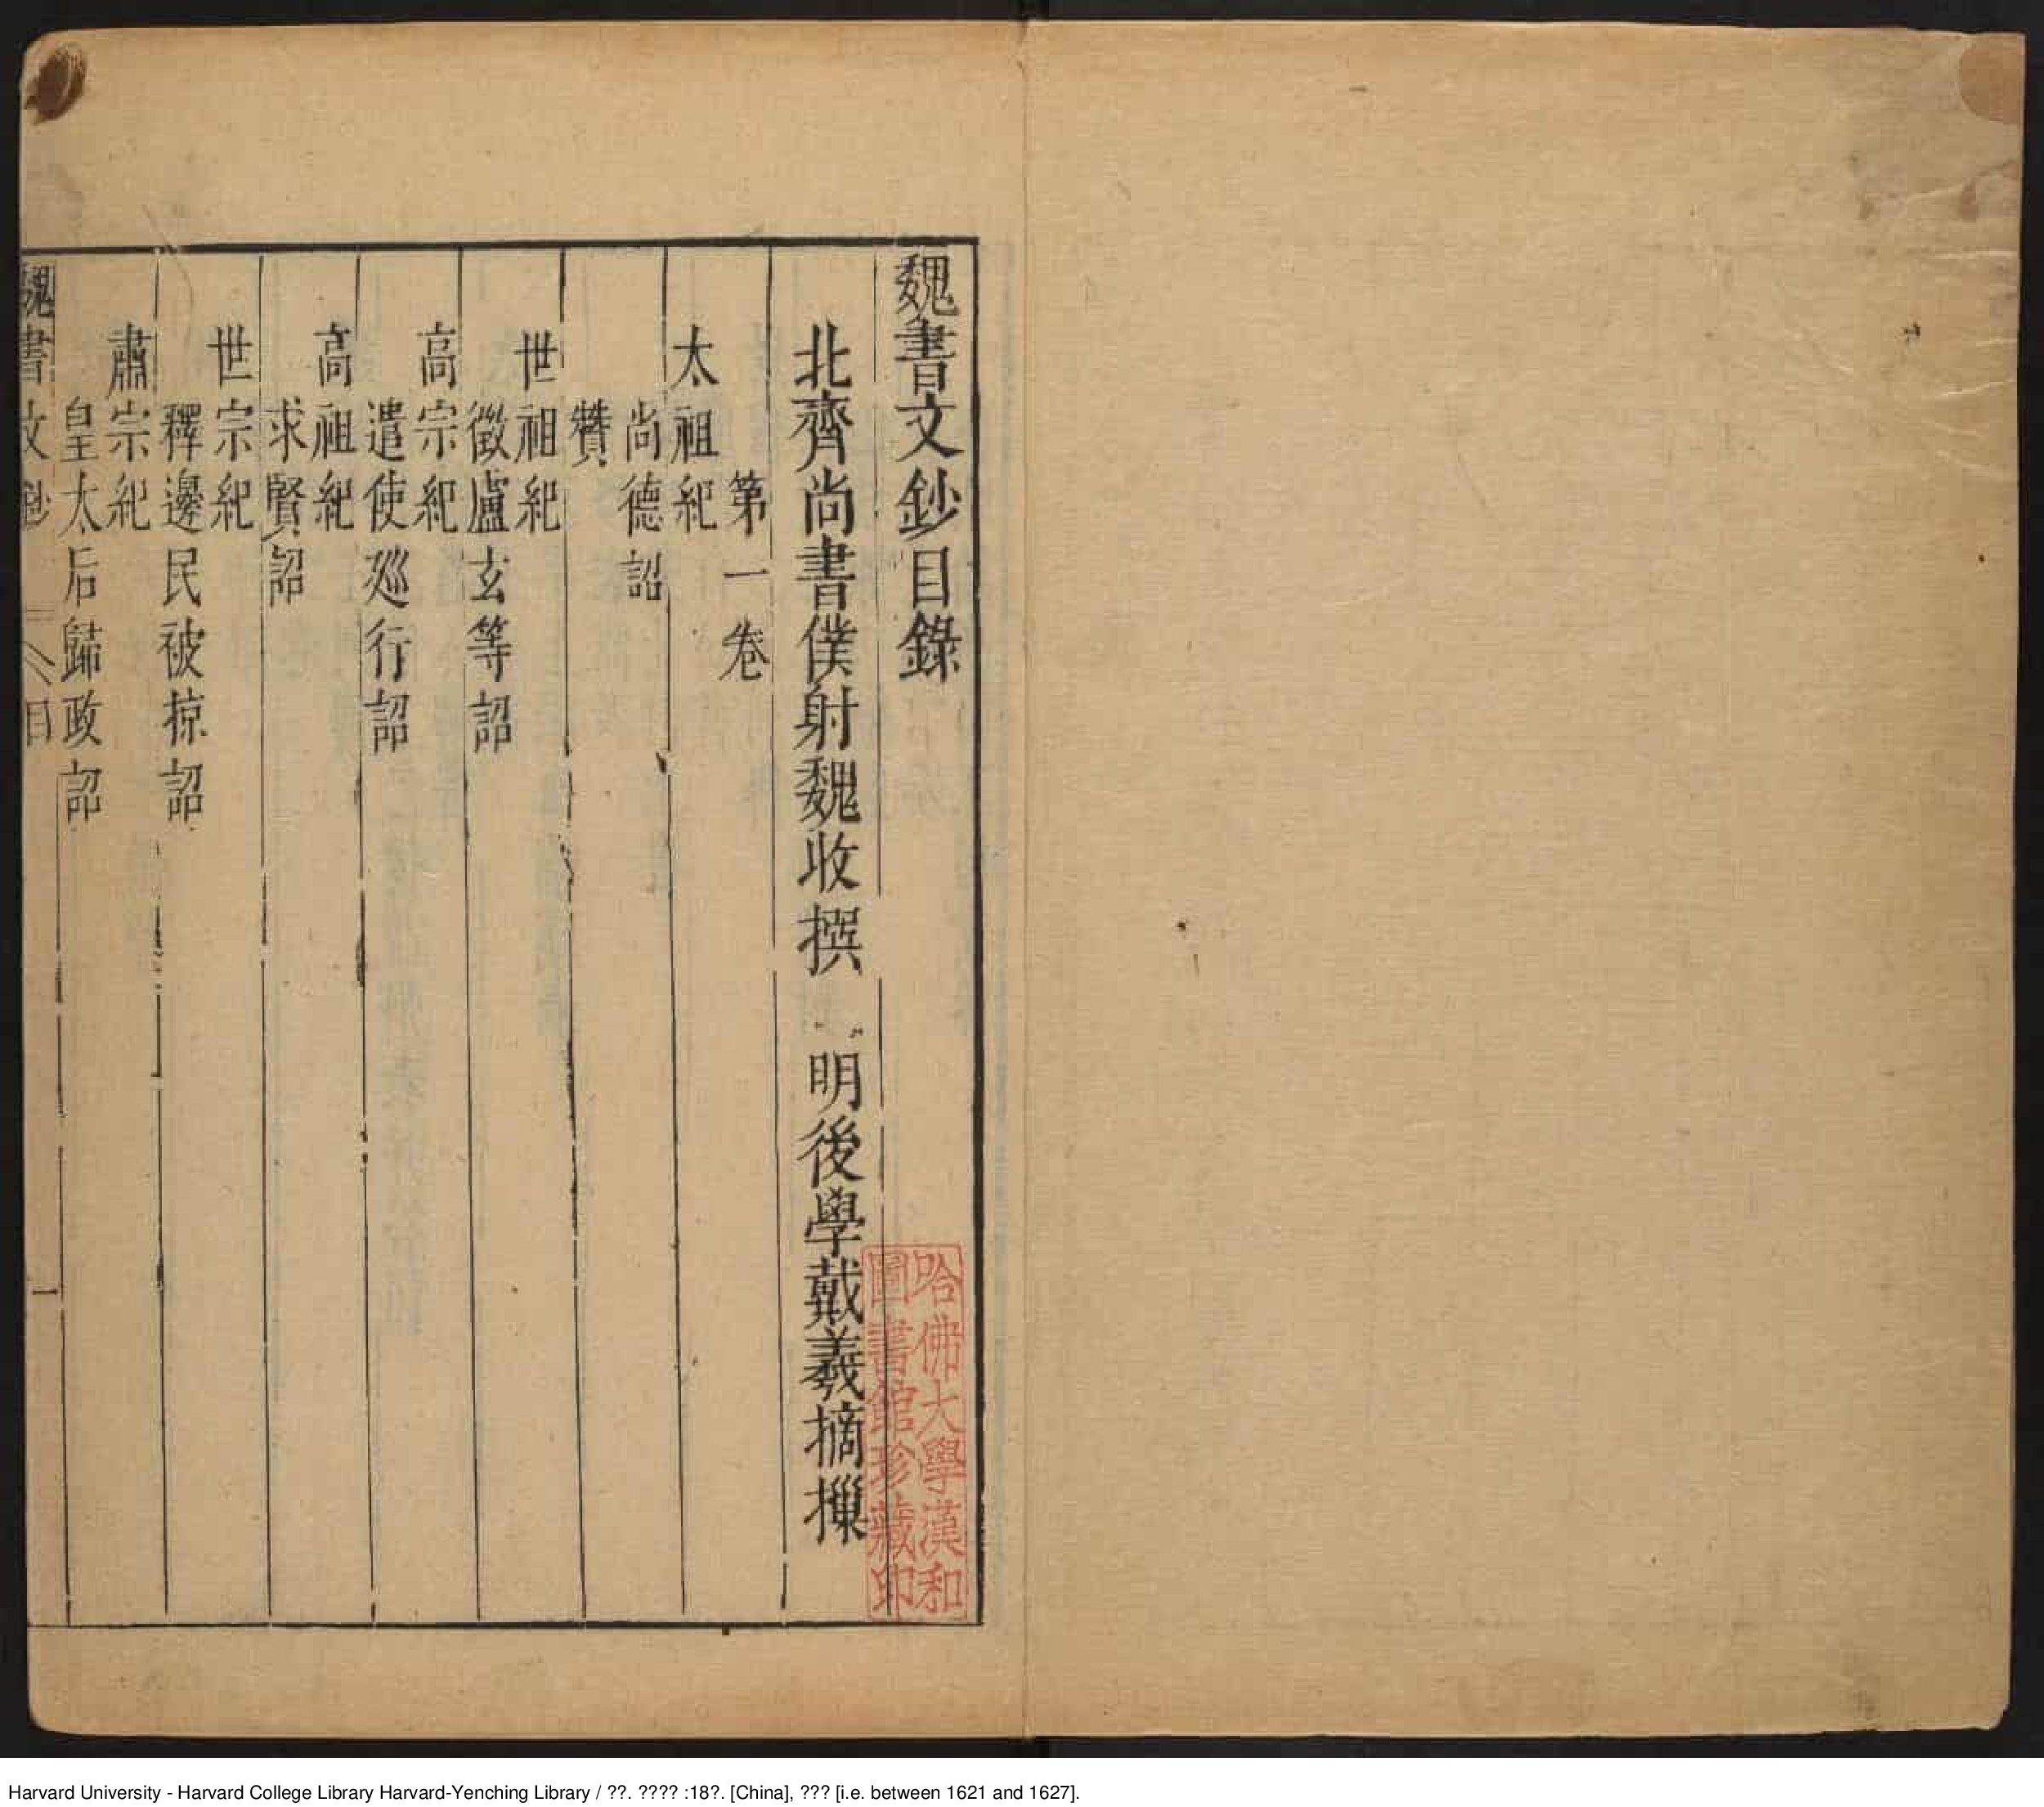 魏書文鈔目錄
北齊尚書僕射魏收撰 明後學戴羲摘攥
第一卷
太祖紀
尚德詔
贊
世祖紀
徵盧玄等詔
高宗紀
遣使廵行詔
高祖紀
求賢詔
世宗紀
釋邊民被掠詔
肅宗紀
皇太后歸政詔
魏書文鈔 目 一
哈佛大學漢和
圖書館珍藏印
Harvard University - Harvard College Library Harvard-Yenching Library / ??. ???? :18?. [China], ??? [i.e. between 1621 and 1627].